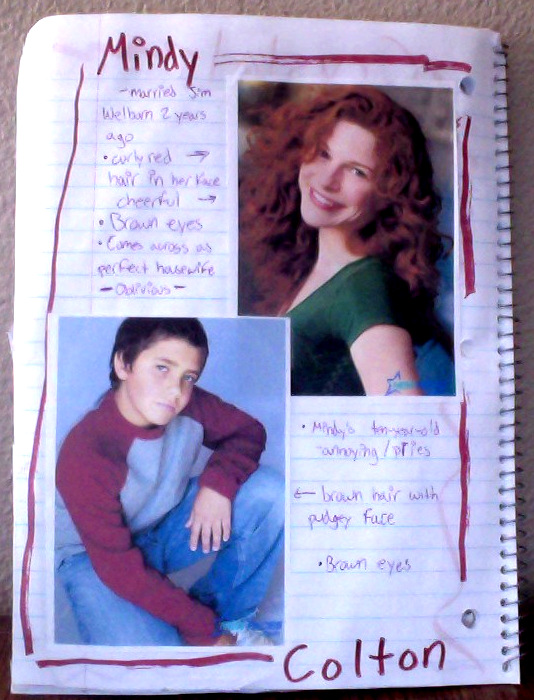 Mindy
- married Jim
Welburn 2 years
ago
• curly red →
hair in her face
cheerful →
• Brown eyes
• Comes across as
perfect housewife
- Oblivious -
• Mindy's ten-year-old
- annoying / pries
← brown hair with
pudgey face
• Brown eyes
Colton